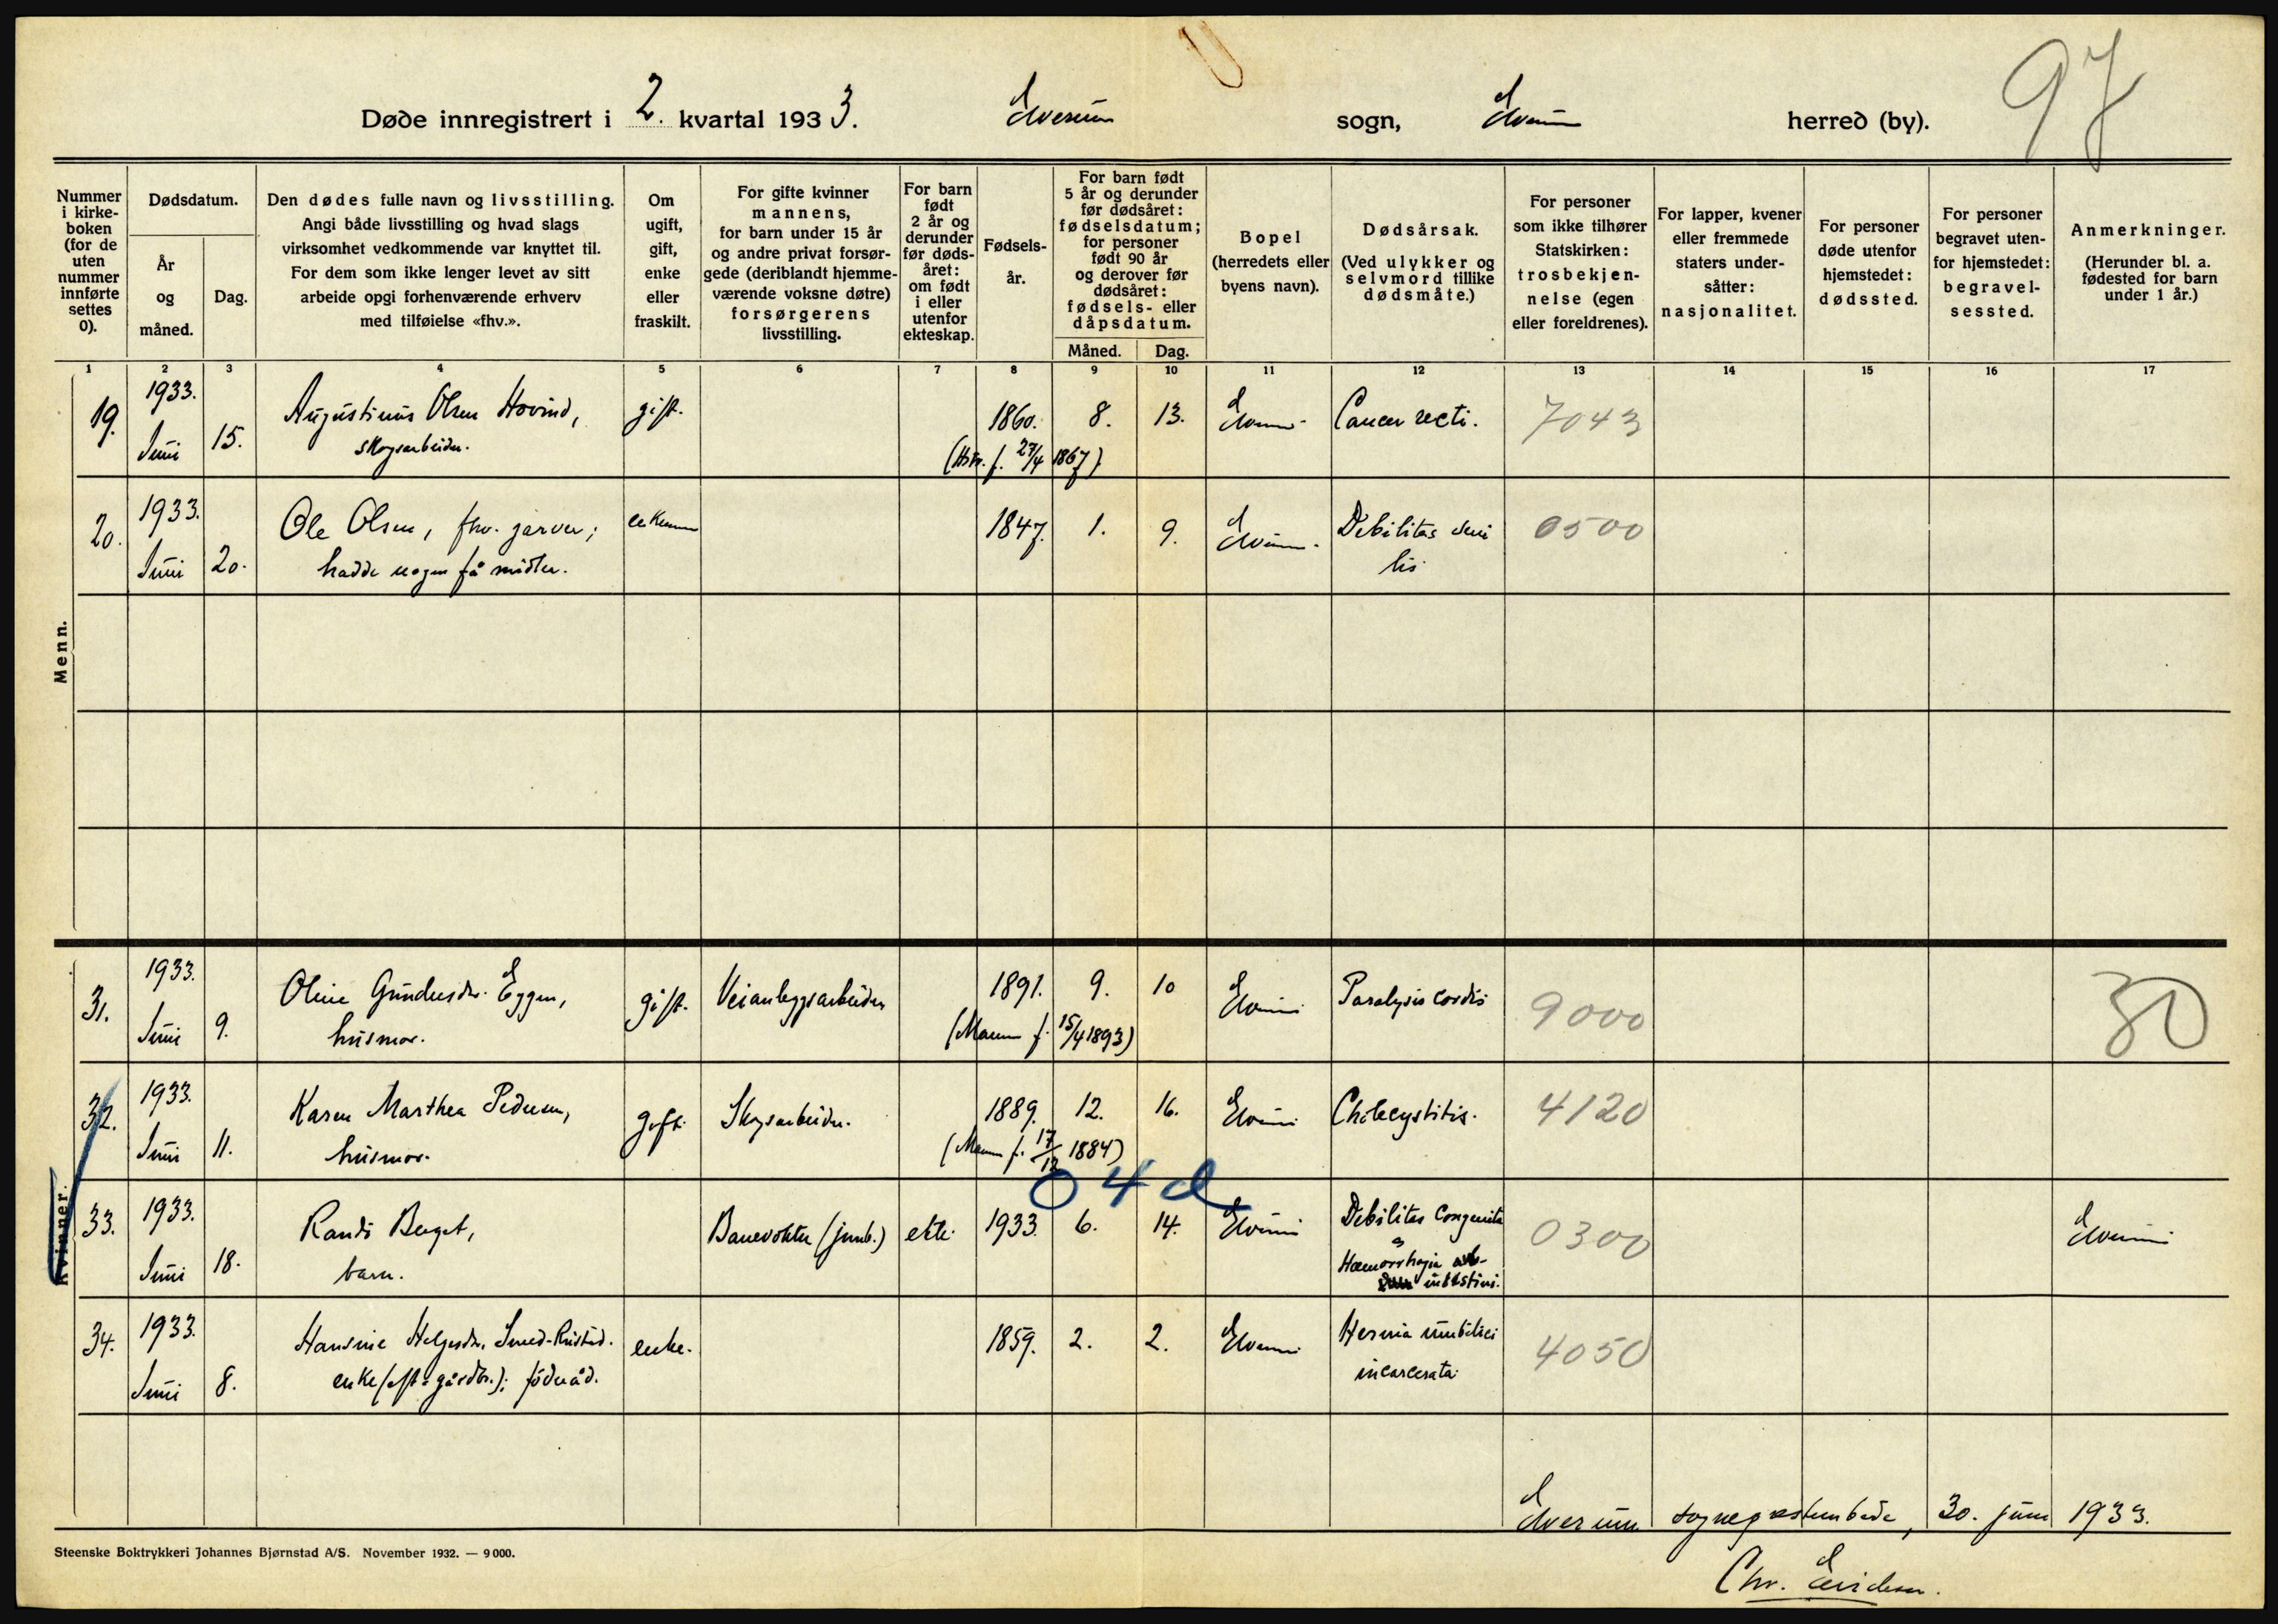 97
Døde innregistrert i 2. kvartal 1933. Elverum sogn, Elverum herred (by).
Nummer i kirke- boken (for de uten nummer innførte settes 0).
Dødsdatum.
År og måned.
Dag.
Den dødes fulle navn og livsstilling.
Angi både livsstilling og hvad slags
virksomhet vedkommende var knyttet til.
For dem som ikke lenger levet av sitt
arbeide opgi forhenværende erhverv
med tilføielse «fhv.».
Om ugift, gift, enke eller fraskilt.
For gifte kvinner mannens, for barn under 15 år og andre privat forsør- gede (deriblandt hjemme- værende voksne døtre) forsørgerens livsstilling.
For barn født 2 år og derunder før døds- året: om født i eller utenfor ekteskap.
Fødsels- år.
For barn født 5 år og derunder før dødsåret: fødselsdatum; for personer født 90 år og derover før dødsåret: fødsels- eller dåpsdatum.
Måned. Dag.
Bopel (herredets eller byens navn).
Dødsårsak. (Ved ulykker og selvmord tillike dødsmåte.)
For personer som ikke tilhører Statskirken: trosbekjen- nelse (egen eller foreldrenes).
For lapper, kvener eller fremmede staters under- såtter: nasjonalitet.
For personer døde utenfor hjemstedet: dødssted.
For personer begravet uten- for hjemstedet: begravel- sessted.
Anmerkninger. (Herunder bl. a. fødested for barn under 1 år.)
1 2 3 4 5 6 7 8 9 10 11 12 13 14 15 16 17
Menn.
19. 1933. Augustinus Olsen Hovind, gift. 1860. 8. 13. Elverum. Cancer recti. 7043
Juni 15. skogsarbeider. (Hstr. f. 27/4 1867).
20. 1933. Ole Olsen, fhv. garver; enkemann 1847. 1. 9. Elverum. Debilitas seni 6500
Juni 20. hadde nogen få midler. lis
Kvinner.
31. 1933. Oline Gundersdr. Eggen, gift. Veianleggsarbeider 1891. 9. 10 Elverum Paralysis cordis 9000 30
Juni 9. husmor. (Mann f. 15/4 1893)
32. 1933. Karen Marthea Pedersen, gift. Skogsarbeider. 1889. 12. 16. Elverum Cholecystitis. 4120
Juni 11. husmor. (Mann f. 17/12 1884)
0 4 d
33. 1933. Randi Berget, Banevokter (jernb.) ekte. 1933. 6. 14. Elverum Debilitas congenita 0300 Elverum
Juni 18. barn. Hæmorrhagia
intestini.
34. 1933. Hansine Helgesdr. enke. 1859. 2. 2. Elverum Hernia umbilici 4050
Juni 8. enke (eft. gårdbr.); føderåd. incarcerata
Elverum sogneprestembede, 30. juni 1933.
Steenske Boktrykkeri Johannes Bjørnstad A/S. November 1932. — 9000.
Chr.